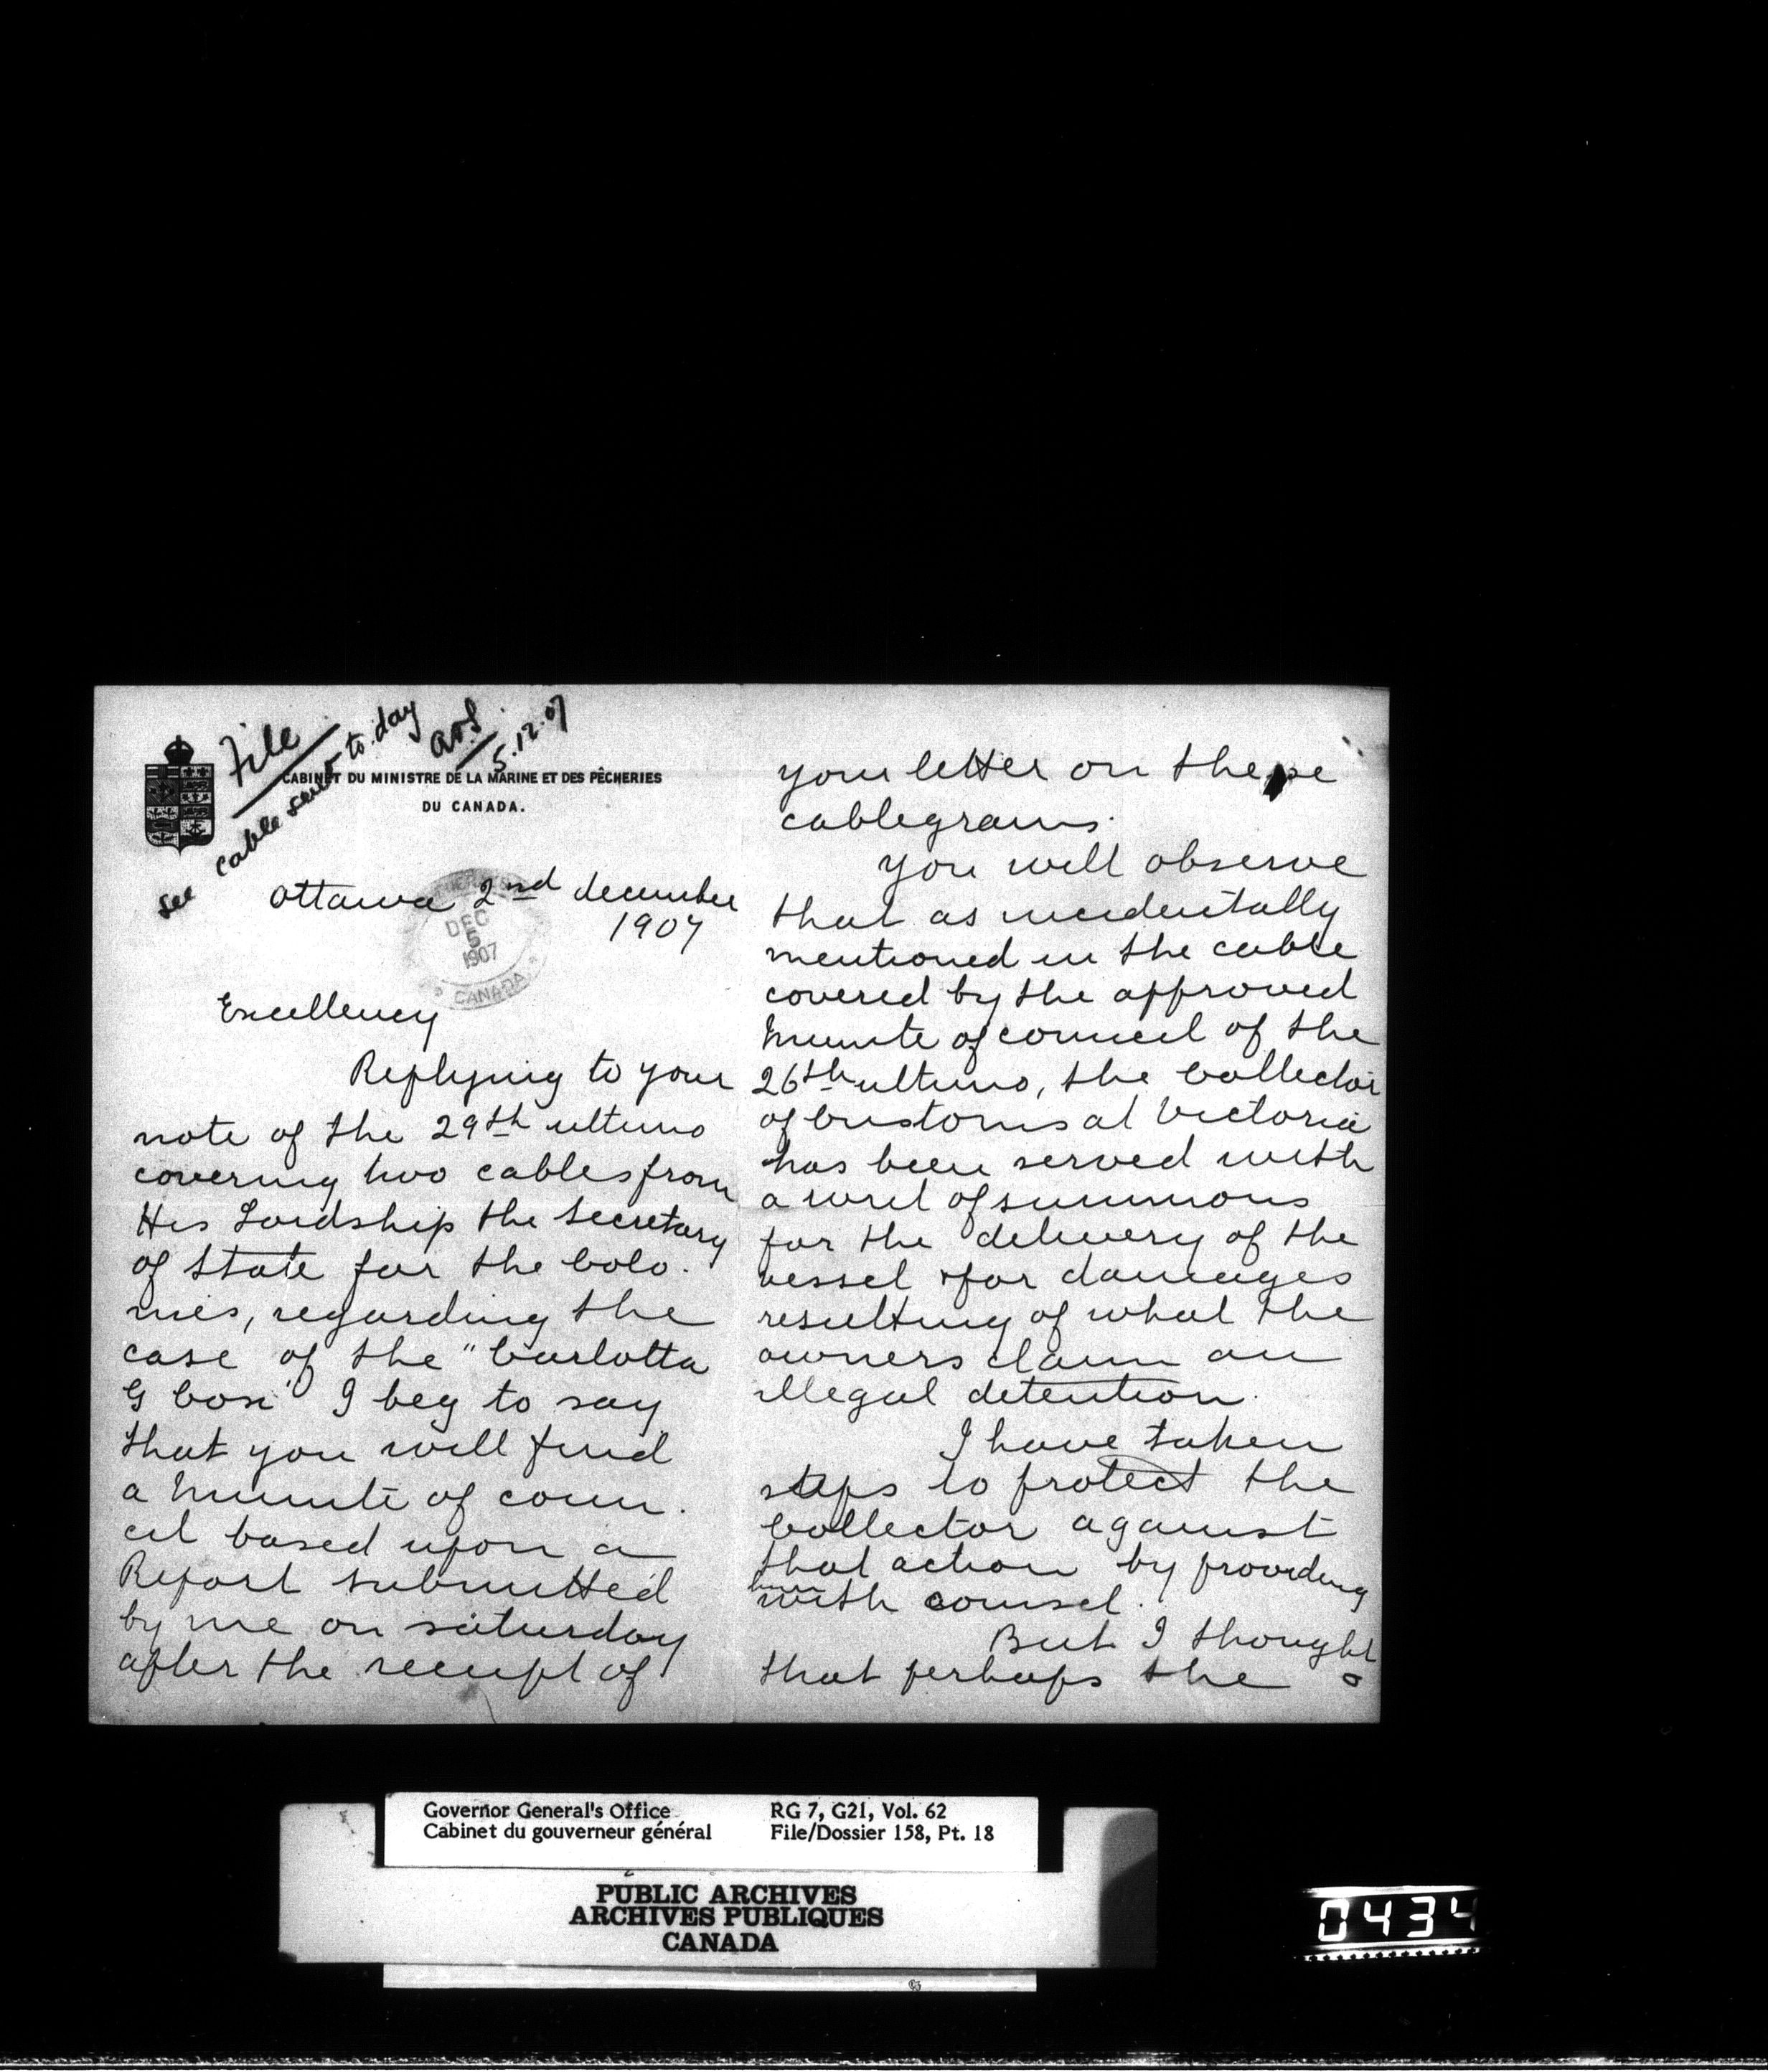 File
see cable sent to-day
5.12.07
CABINET DU MINISTRE DE LA MARINE ET DES PÊCHERIES
DU CANADA.
DEC
5
1907
CANADA
Ottawa 2nd december
1907
Excellency
Replying to your
note of the 29th ultimo
covering two cables from
His Lordship the Secretary
of State for the Colo-
nies, regarding the
case of the "Carlotta
G Cox" I beg to say
that you will find
a Minute of Coun-
cil based upon a
Report submitted
by me on saturday
after the receipt of
your letter on these
cablegrams.
You will observe
that as incidentally
mentioned in the cable
covered by the approved
Minute of Council of the
26th ultimo, the Collector
of Customs at Victoria
has been served with
a writ of summons
for the delivery of the
vessel & for damages
resulting of what the
owners claim an
illegal detention.
I have taken
steps to protect the
Collector against
that action by providing
him
with counsel.
But I thought
that perhaps the
Governor General's Office
Cabinet du gouverneur général
RG 7, G21, Vol. 62
File/Dossier 158, Pt. 18
PUBLIC ARCHIVES
ARCHIVES PUBLIQUES
CANADA
0434